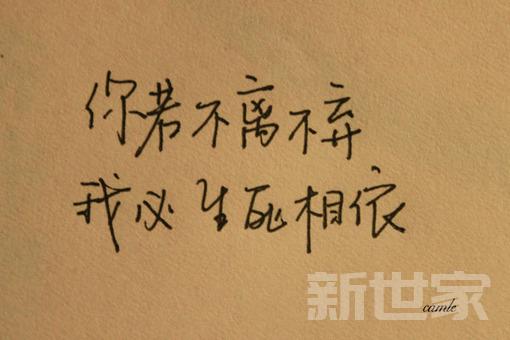 你若不离不弃
我必生死相依
新世家
camle